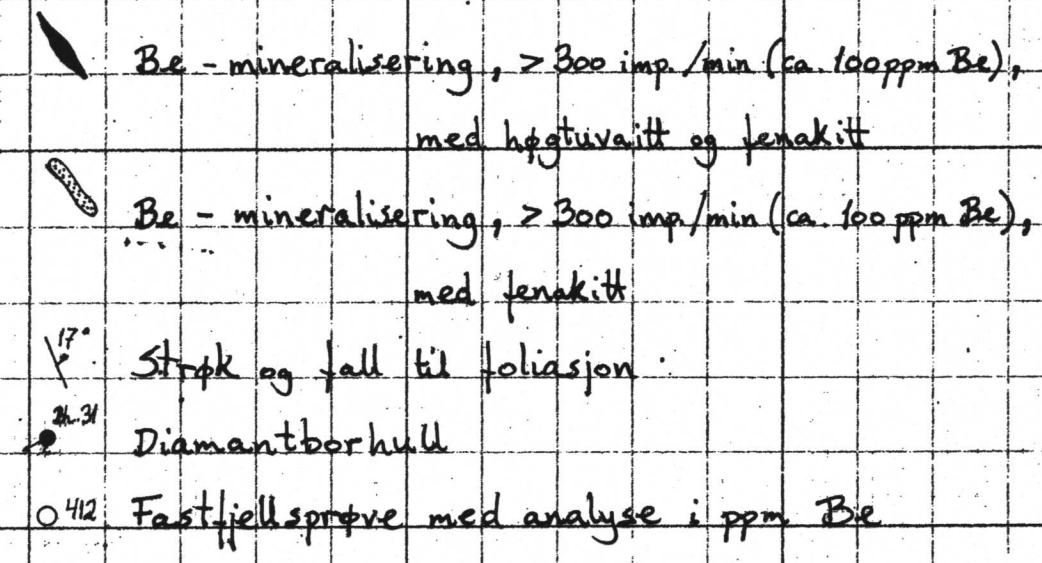 Be - mineralisering, > 300 imp./min (ca. 100 ppm Be),
med høgtuvaitt og fenakitt
Be - mineralisering, > 300 imp./min (ca. 100 ppm Be),
med fenakitt
17° Strøk og fall til foliasjon
Bh. 31 Diamantborhull
412 Fastfjellsprøve med analyse i ppm Be